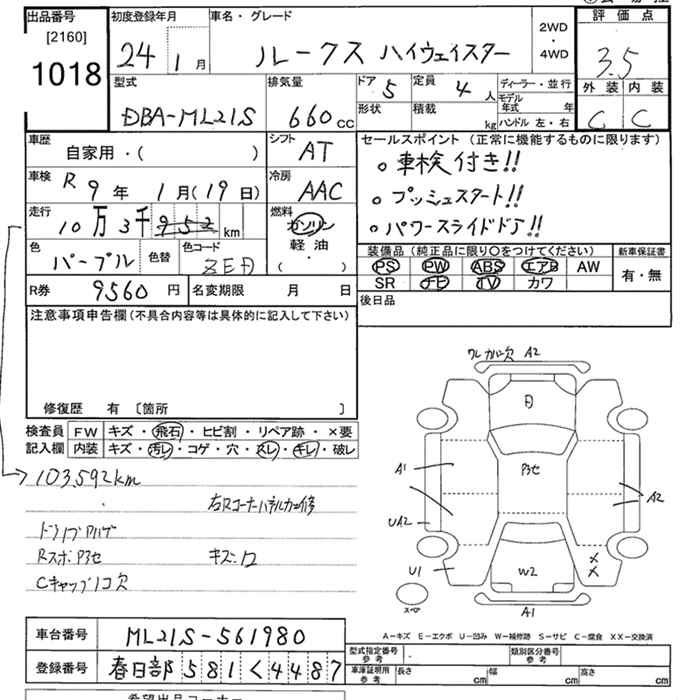 出品番号 初度登録年月 車名・グレード 2WD・4WD 評価点
[2160]
1018 24 1月 ルークス ハイウェイスター 3.5
型式 排気量 ドア 5 定員 4人 ディーラー・並行 外装 内装
DBA-ML21S 660cc 形状 積載 kg モデル年式 年 C C
ハンドル 左・右
車歴 シフト セールスポイント(正常に機能するものに限ります)
自家用・( ) AT 。車検付き!!
車検 R9年 1月(19日) 冷房 AAC 。プッシュスタート!!
走行 10万3千952km 燃料 ガソリン 。パワースライドドア!!
軽油
・
( )
色 パープル 色替 色コード 装備品(純正品に限り○をつけてください) 新車保証書
PS PW ABS エアB AW 有・無
R券 9560円 名変期限 月 日 SR ナビ TV カワ
後日品
注意事項申告欄(不具合内容等は具体的に記入して下さい)
修復歴 有 〔箇所 〕
検査員 FW キズ・飛石・ヒビ割・リペア跡・×要
記入欄 内装 キズ・汚レ・コゲ・穴・スレ・キレ・破レ
103,592km
Cキャップ1コ欠
A2
A1
A2
UA2
U1
W2
スペア
A1
A-キズ E-エクボ U-凹み W-補修跡 S-サビ C-腐食 XX-交換済
車台番号 ML21S-561980 型式指定番号 参考 類別区分番号 参考
登録番号 春日部 581く4487 車庫証明用 参考 長さ cm 幅 cm 高さ cm